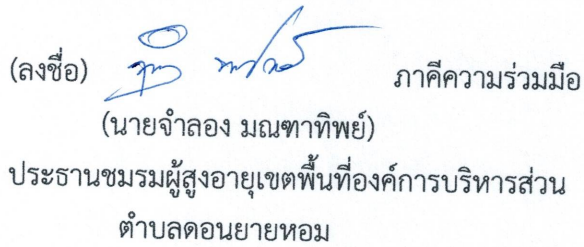 (ลงชื่อ) ภาคีความร่วมมือ
(นายจำลอง มณฑาทิพย์)
ประธานชมรมผู้สูงอายุเขตพื้นที่องค์การบริหารส่วน
ตำบลดอนยายหอม